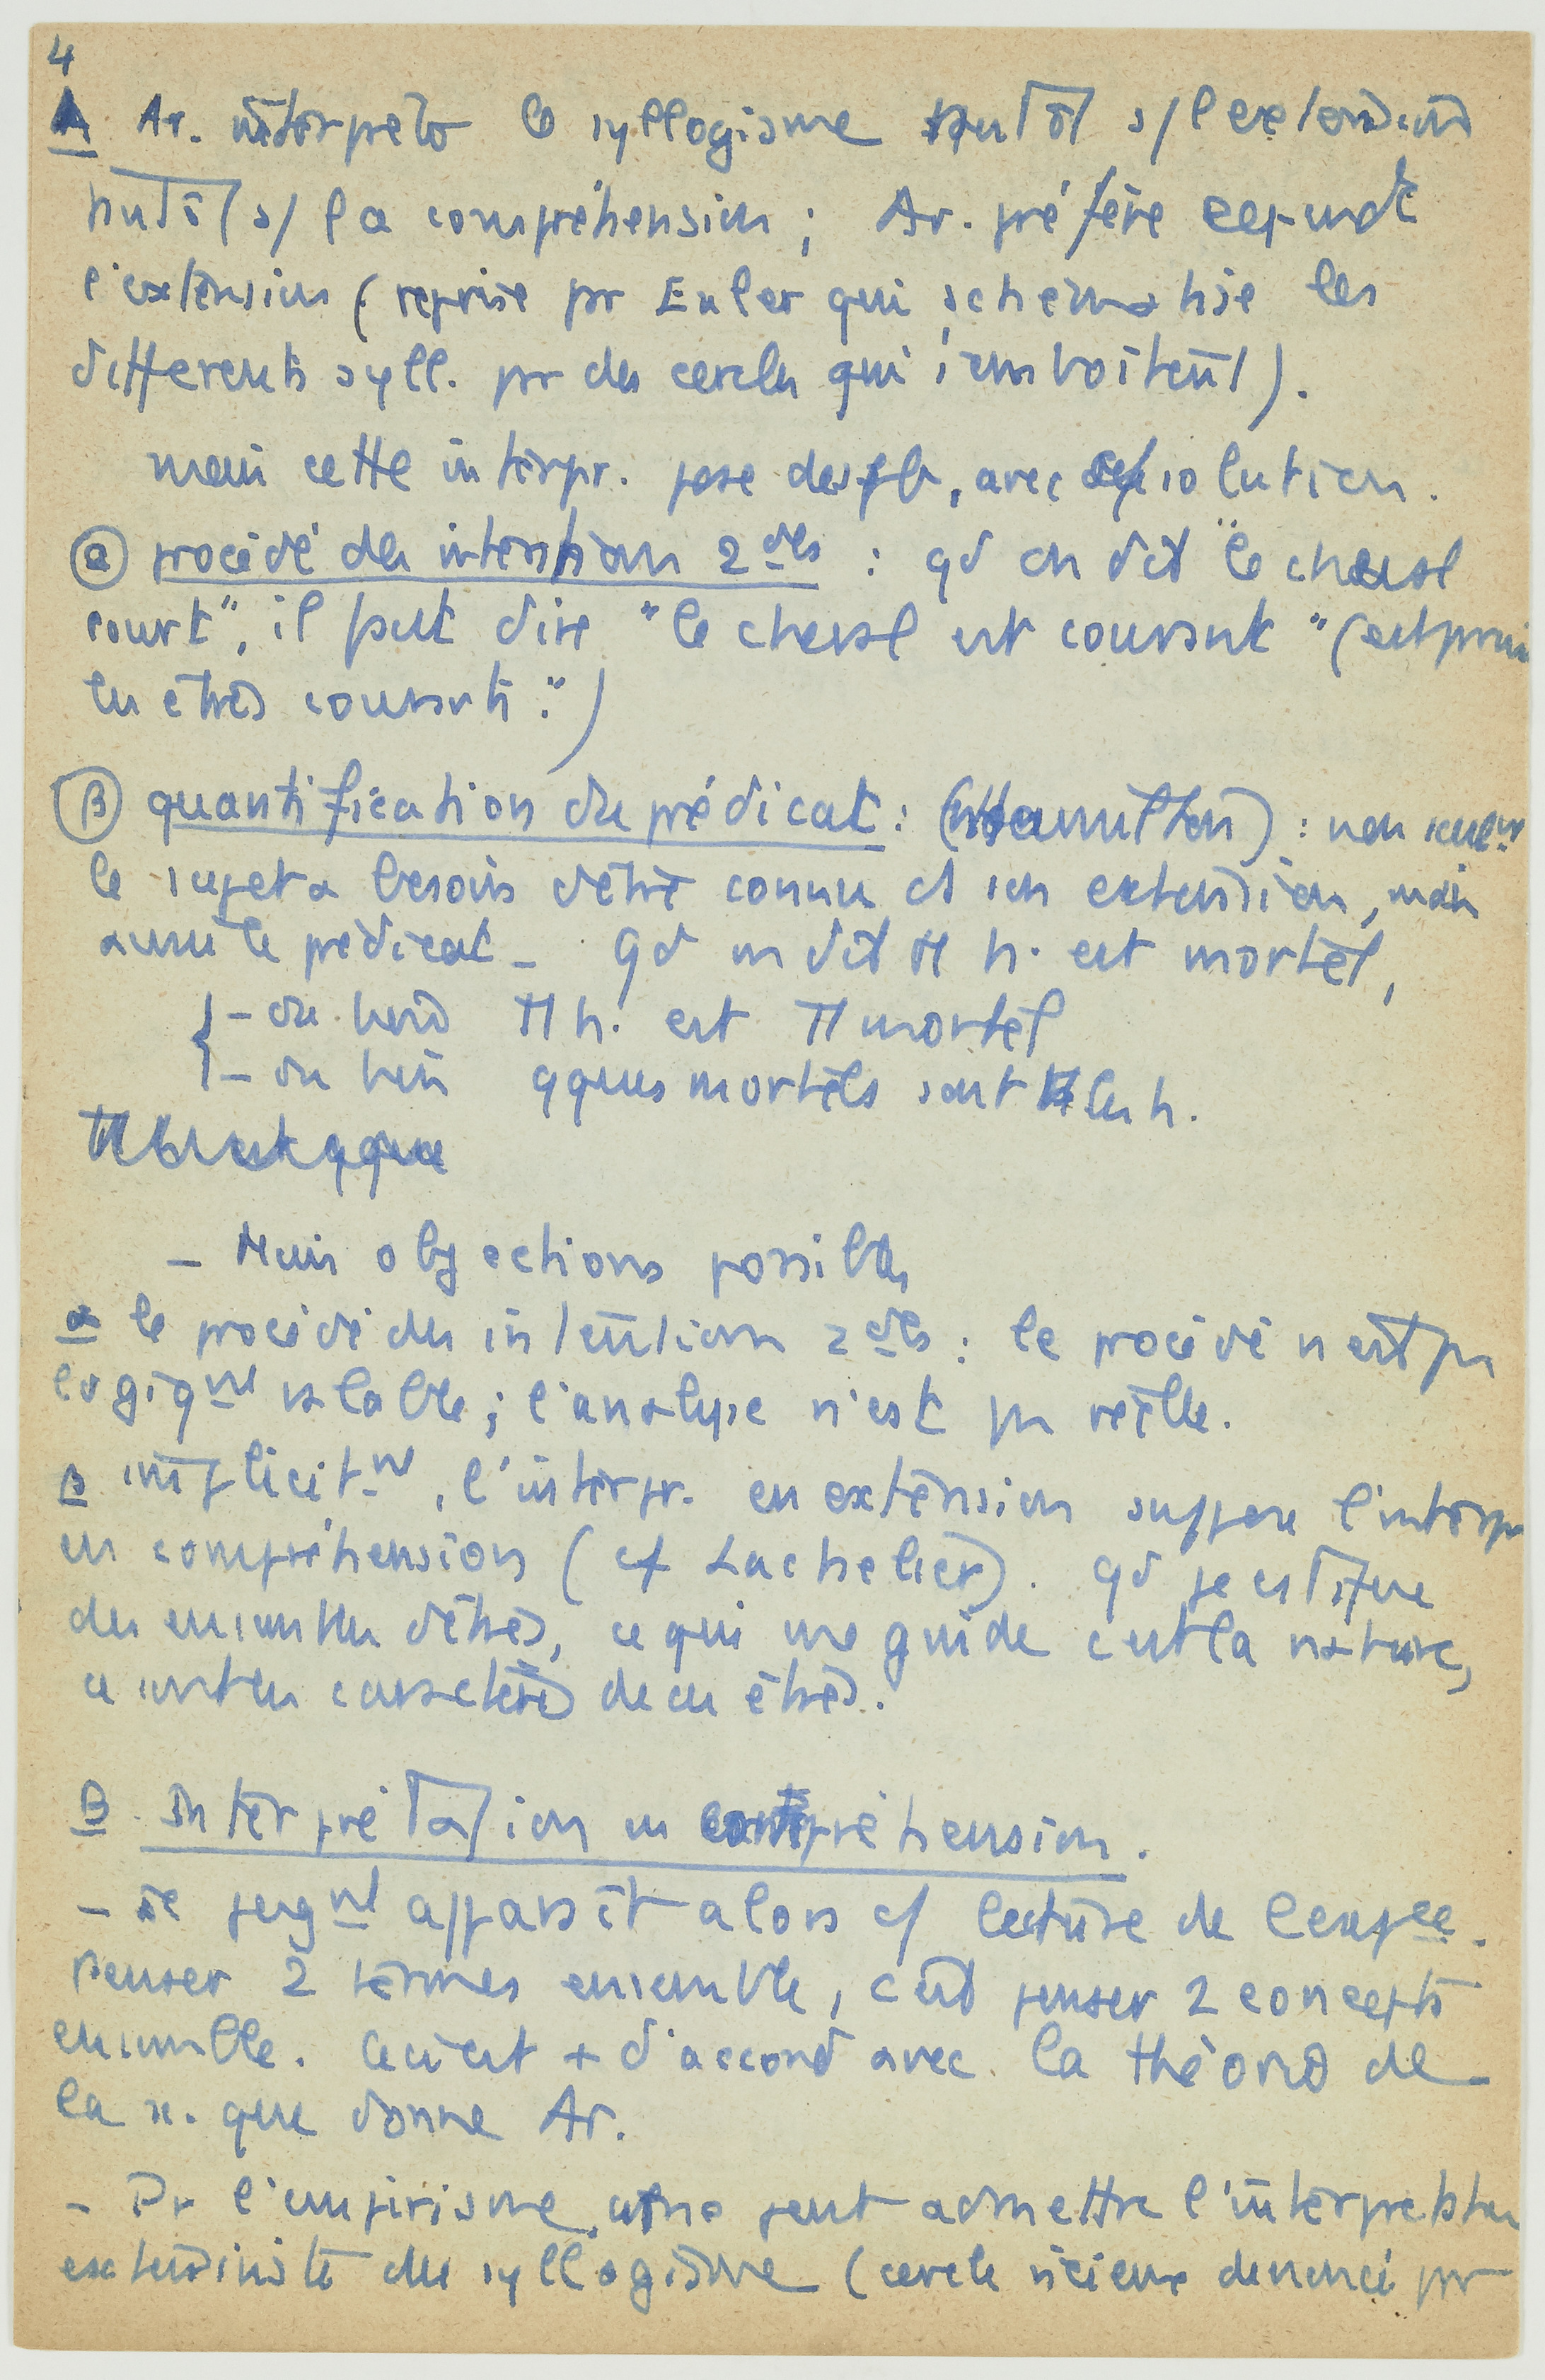 4
A Ar. interprète le syllogisme tantôt s/ l'extension
tantôt s/ la compréhension ; Ar. préfère cepndt
l'extension (reprise pr Euler qui schématise les
différents syll. pr des cercles qui s'emboîtent).
mais cette interpr. pose des pb, avec solution.
α procédé des intentions 2des : qd on dit "le cheval
court", il faut dire "le cheval est courant" (est parmi
les êtres courants.")
β quantification du prédicat : (Hamilton) : non seulmt
le sujet a besoin d'être connu ds son extension, mais
aussi le prédicat _ Qd on dit tt h. est mortel,
{ - ou bien tt h. est tt mortel
- ou bien qques mortels sont les h.
- Mais objections possibles
α le procédé des intentions 2des : le procédé n'est pas
logiqmt valable ; l'analyse n'est pas réelle.
β implicitmt, l'interpr. en extension suppose l'interpr
en compréhension (cf Lachelier). qd je constitue
des ensembles d'êtres, ce qui me guide c'est la nature,
ce sont les caractères de ces êtres.
B. Interprétation en compréhension.
- le jugmt apparaît alors cf lecture de l'expce.
Penser 2 termes ensemble, c'est penser 2 concepts
ensemble. Ceci est + d'accord avec la théorie de
la que donne Ar.
- Pr l'empirisme, on ne peut admettre l'interprétation
extensiviste du syllogisme (cercle vicieux dénoncé pr